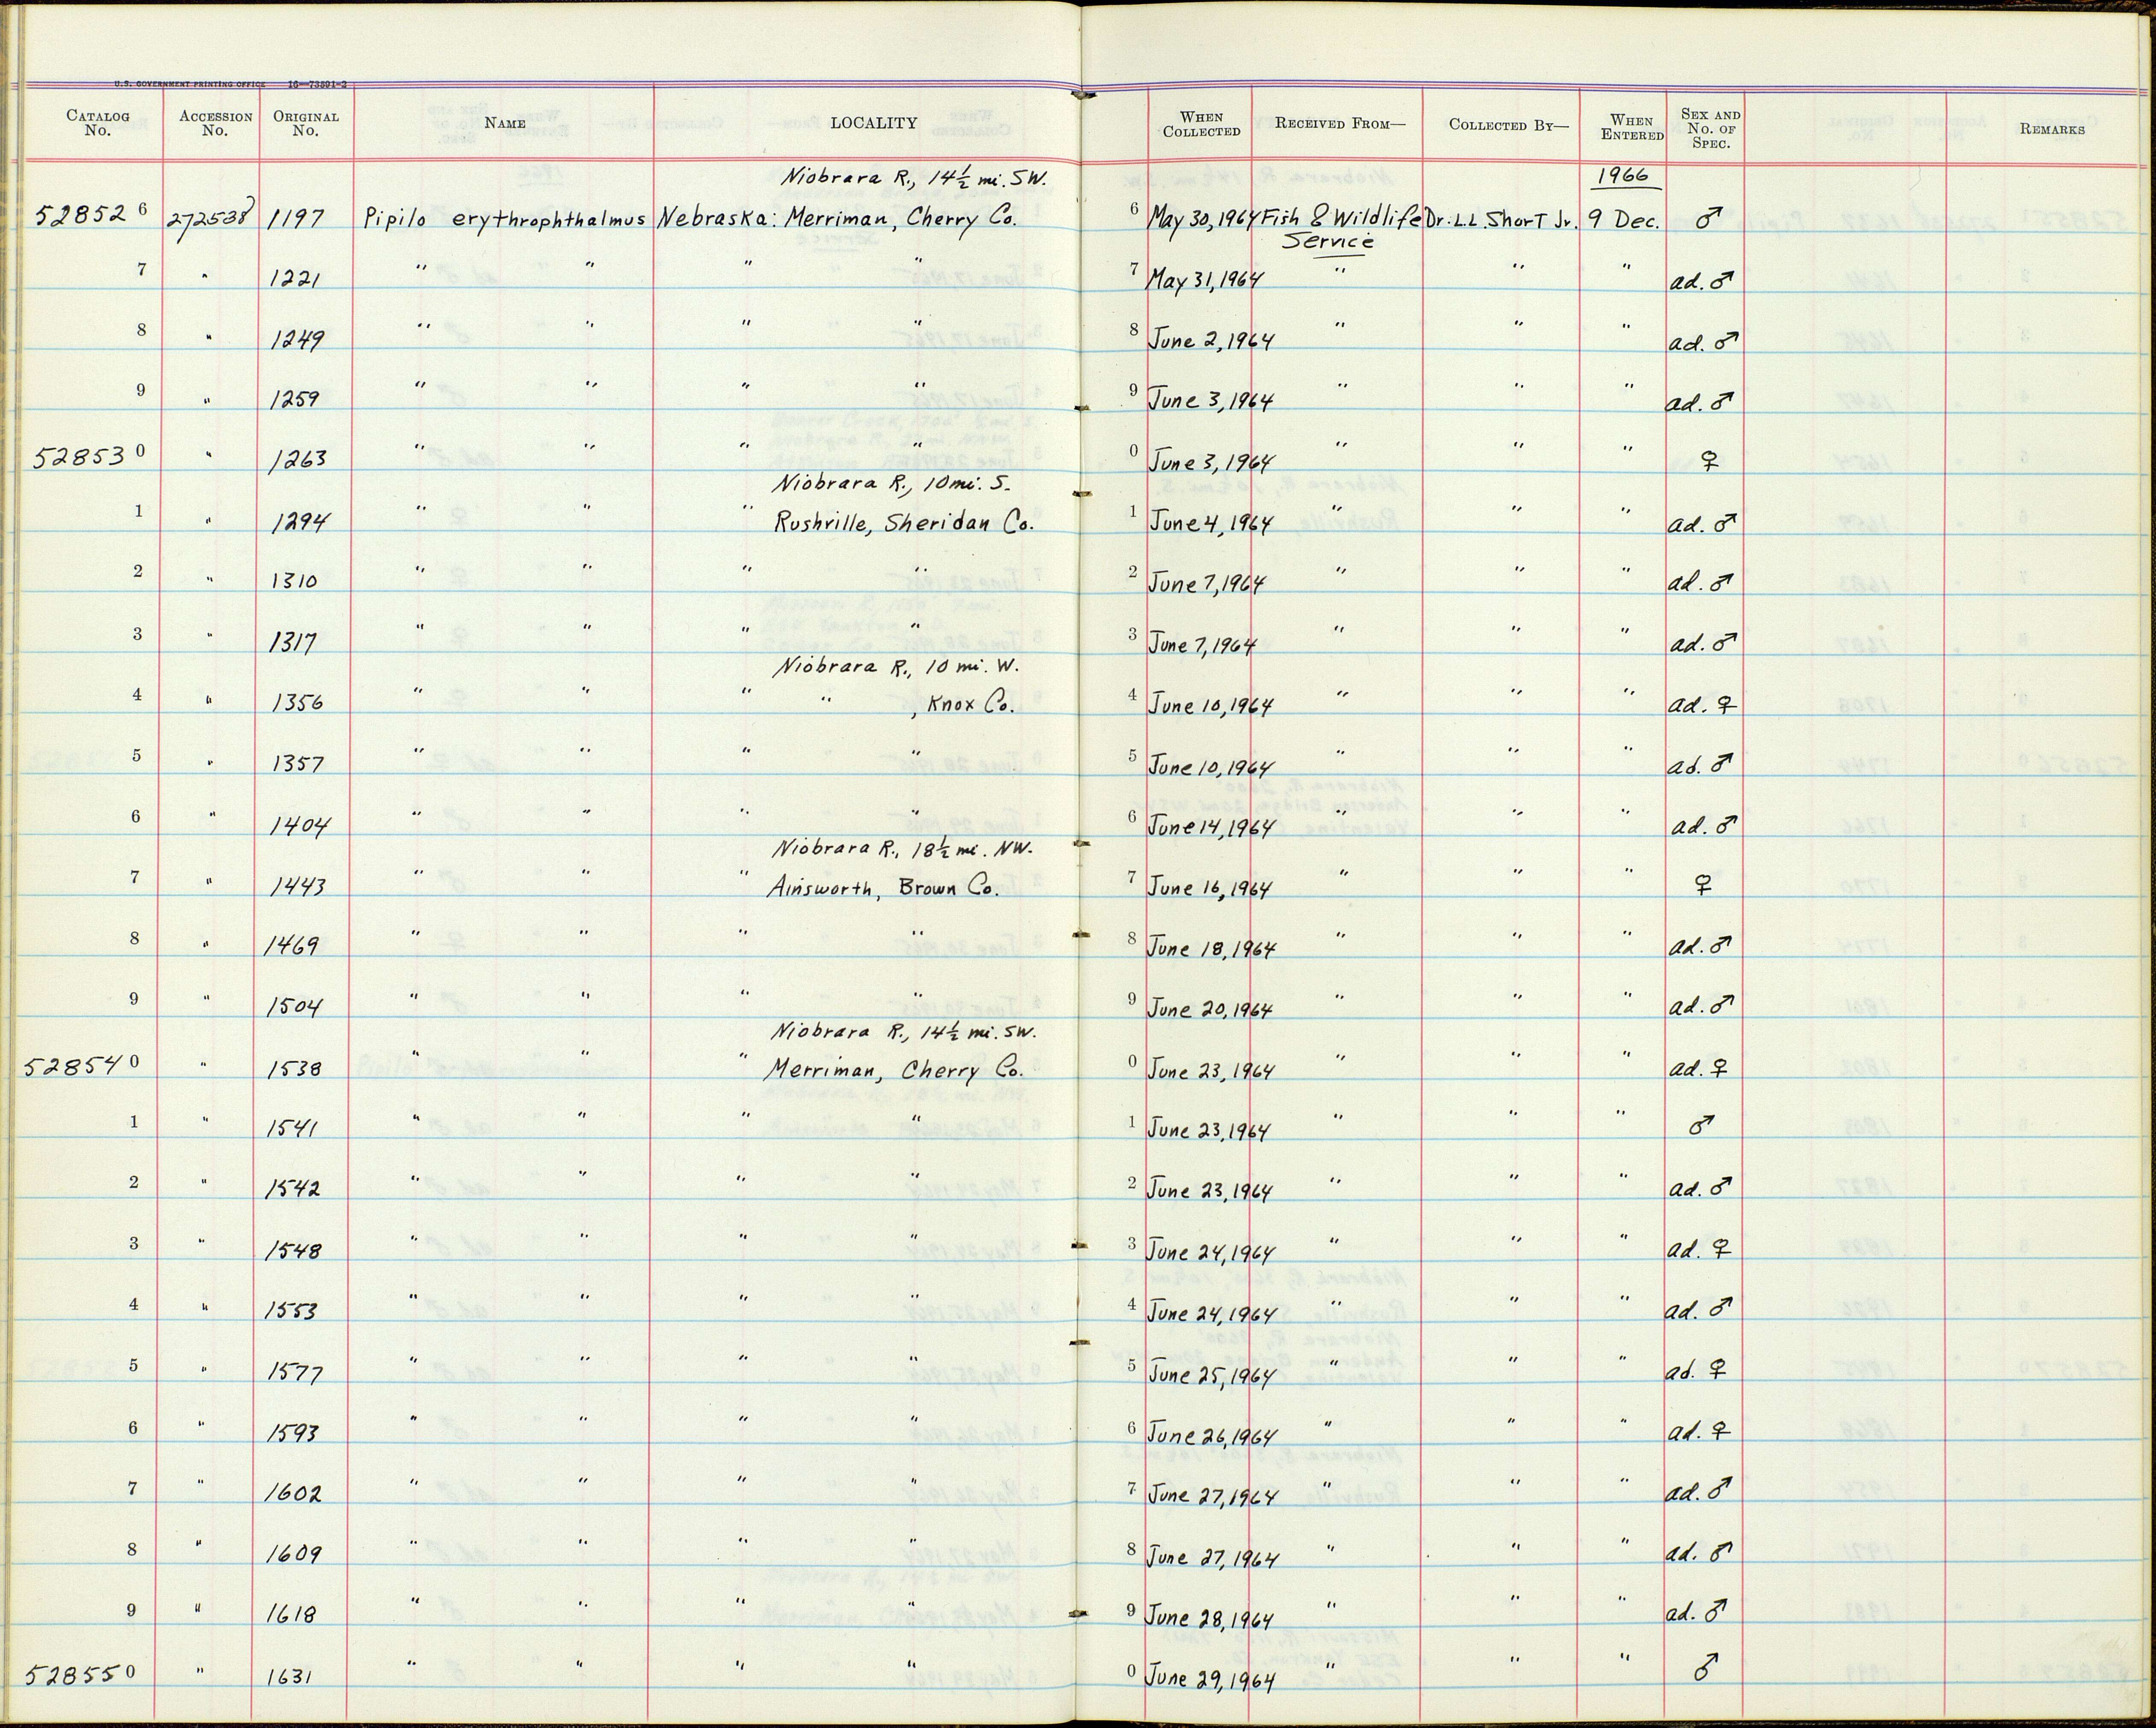 U.S. GOVERNMENT PRINTING OFFICE 16—73591-2
CATALOG No. ACCESSION No. ORIGINAL No. NAME LOCALITY WHEN COLLECTED RECEIVED FROM— COLLECTED BY— WHEN ENTERED SEX AND No. OF SPEC. REMARKS
Niobrara R., 14½ mi. SW. 1966
528526 272538 1197 Pipilo erythrophthalmus Nebraska: Merriman, Cherry Co. 6 May 30, 1964 Fish & Wildlife Dr. L.L. Short Jr. 9 Dec. ♂
Service
7 " 1221 " " " " 7 May 31, 1964 " " " ad. ♂
8 " 1249 " " " " 8 June 2, 1964 " " " ad. ♂
9 " 1259 " " " " 9 June 3, 1964 " " " ad. ♂
528530 " 1263 " " " " 0 June 3, 1964 " " " ♀
Niobrara R., 10 mi. S.
1 " 1294 " " " Rushville, Sheridan Co. 1 June 4, 1964 " " " ad. ♂
2 " 1310 " " " " 2 June 7, 1964 " " " ad. ♂
3 " 1317 " " " " 3 June 7, 1964 " " " ad. ♂
Niobrara R., 10 mi. W.
4 " 1356 " " " " , Knox Co. 4 June 10, 1964 " " " ad. ♀
5 " 1357 " " " " 5 June 10, 1964 " " " ad. ♂
6 " 1404 " " " " 6 June 14, 1964 " " " ad. ♂
Niobrara R., 18½ mi. NW.
7 " 1443 " " " Ainsworth, Brown Co. 7 June 16, 1964 " " " ♀
8 " 1469 " " " " 8 June 18, 1964 " " " ad. ♂
9 " 1504 " " " " 9 June 20, 1964 " " " ad. ♂
Niobrara R., 14½ mi. SW.
528540 " 1538 " " " Merriman, Cherry Co. 0 June 23, 1964 " " " ad. ♀
1 " 1541 " " " " 1 June 23, 1964 " " " ♂
2 " 1542 " " " " 2 June 23, 1964 " " " ad. ♂
3 " 1548 " " " " 3 June 24, 1964 " " " ad. ♀
4 " 1553 " " " " 4 June 24, 1964 " " " ad. ♂
5 " 1577 " " " " 5 June 25, 1964 " " " ad. ♀
6 " 1593 " " " " 6 June 26, 1964 " " " ad. ♀
7 " 1602 " " " " 7 June 27, 1964 " " " ad. ♂
8 " 1609 " " " " 8 June 27, 1964 " " " ad. ♂
9 " 1618 " " " " 9 June 28, 1964 " " " ad. ♂
528550 " 1631 " " " " 0 June 29, 1964 " " " ♂